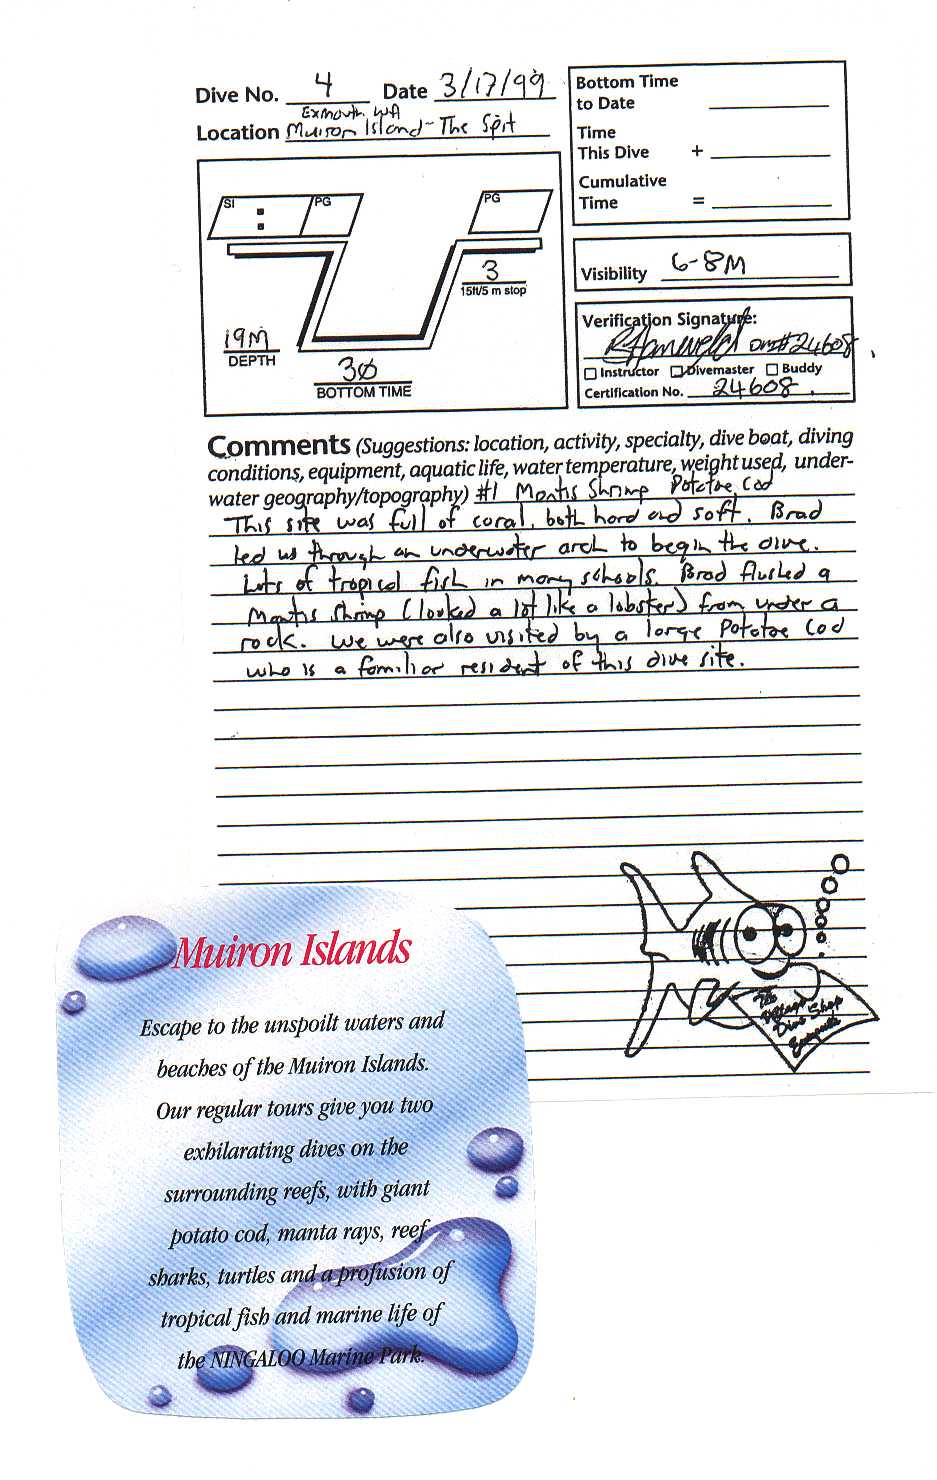 Dive No. 4 Date 3/17/99
Exmouth WA
Location Muiron Island - The Spit
SI : PG
PG
3
15ft/5 m stop
19M
DEPTH
30
BOTTOM TIME
Bottom Time
to Date
Time
This Dive +
Cumulative
Time =
Visibility 6-8M
Verification Signature:
DM#24608
Instructor Divemaster Buddy
Certification No. 24608
Comments (Suggestions: location, activity, specialty, dive boat, diving
conditions, equipment, aquatic life, water temperature, weight used, under-
water geography/topography) #1 Mantis Shrimp Potatoe Cod
This site was full of coral, both hard and soft. Brad
led us through an underwater arch to begin the dive.
Lots of tropical fish in many schools. Brad flushed a
Mantis Shrimp (looked a lot like a lobster) from under a
rock. We were also visited by a large Potatoe Cod
who is a familiar resident of this dive site.
The
Village
Dive Shop
Exmouth
Muiron Islands
Escape to the unspoilt waters and
beaches of the Muiron Islands.
Our regular tours give you two
exhilarating dives on the
surrounding reefs, with giant
potato cod, manta rays, reef
sharks, turtles and a profusion of
tropical fish and marine life of
the NINGALOO Marine Park.